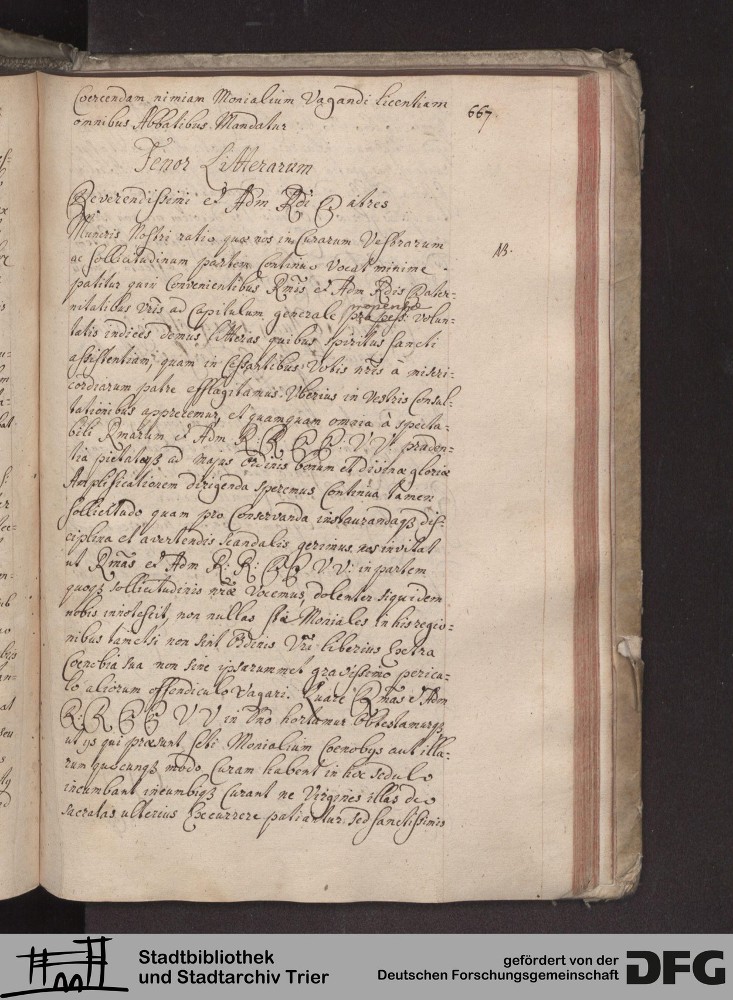 Coercendam nimiam Monialium Vagandi licentiam
omnibus Abbatibus Mandatur
667
Tenor Litterarum
Reverendissimi et Adm Rdi Patres
Muneris Nostri ratio quæ nos in Curarum Vestrarum
NB.
ac sollicitudinum partem Continuo Vocat minime
patitur quin Convenientibus Rmis et Adm Rdis Pater=
nitatibus Vris ad Capitulum generale propensæ volun=
tatis indices demus litteras quibus Spiritus Sancti
assistentiam, quam in Cessantibus Votis nris à miseri=
cordiarum patre efflagitamus Uberius in Vestris Consul=
tationibus apprecemur, et quamquam omnia à specta=
bili Rmarum et Adm R: R: P P: V V: pruden=
tia pietateqz ad majus Ordinis bonum et divinæ gloriæ
Amplificationem dirigenda speremus, Continua tamen
sollicitudo quam pro Conservanda instaurandaqz dis=
ciplina et avertendis scandalis gerimus, nos invitat
ut Rmas et Adm R: R: P P V V: in partem
quoqz sollicitudinis nræ Vocemus, dolenter siquidem
nobis innotescit, non nullas Moniales in his regio=
nibus tametsi non sint Ordinis Vri liberius Extra
Coenobia sua non sine ipsarummet gravissimo pericu=
lo aliorum offendiculo Vagari. Quare Rmas et Adm
R: R P P V V in Dno hortamur Obtestamurqz
ut ijs qui præsunt, Monialium Coenobijs aut illa=
rum quocunqz modo Curam habent in hoc sedulo
incumbant incumbiqz Curant ne Virgines illas deo
sacratas ulterius Excurrere patiantur, sed Sanctissimis
Stadtbibliothek
und Stadtarchiv Trier
gefördert von der
Deutschen Forschungsgemeinschaft
DFG